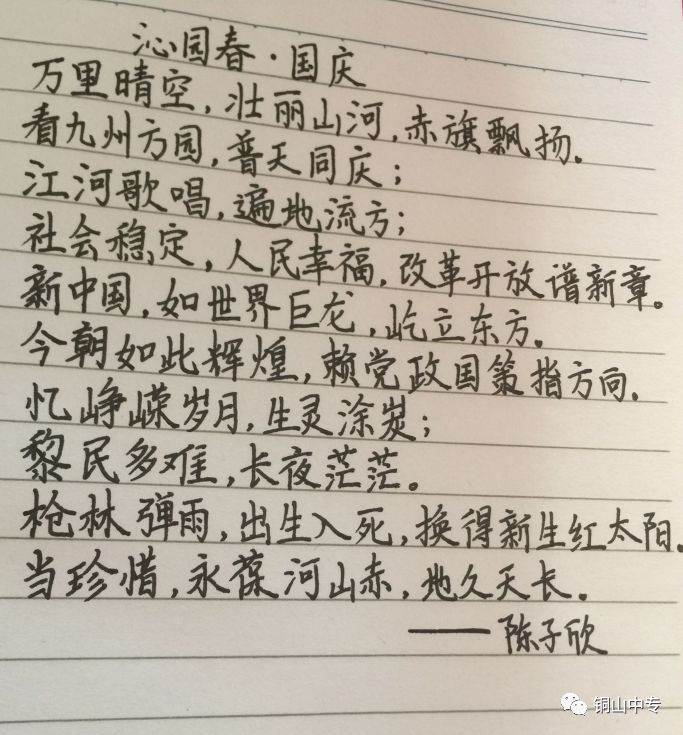 沁园春·国庆
万里晴空，壮丽山河，赤旗飘扬。
看九州方园，普天同庆；
江河歌唱，遍地流方；
社会稳定，人民幸福，改革开放谱新章。
新中国，如世界巨龙，屹立东方。
今朝如此辉煌，赖党政国策指方向。
忆峥嵘岁月，生灵涂炭；
黎民多难，长夜茫茫。
枪林弹雨，出生入死，换得新生红太阳。
当珍惜，永葆河山赤，地久天长。
——陈子欣
铜山中专